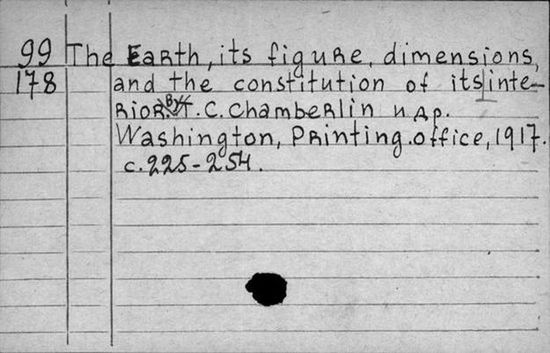 99 The Earth, its figure, dimensions,
178 and the constitution of its inte-
rior. By T. C. Chamberlin и др.
Washington, Printing. office, 1917.
с. 225-254.